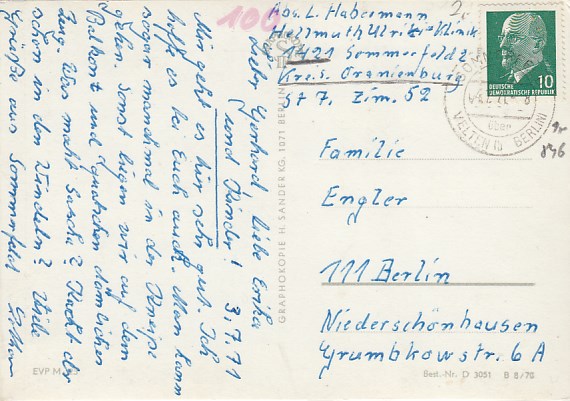 100
Abs. L. Habermann
Hellmuth Ulrici-Klinik
1421 Sommerfeld
Kreis Oranienburg
St 7, Zim. 52
10
DEUTSCHE
DEMOKRATISCHE REPUBLIK
über
VELTEN (BERLIN)
846
Familie
Engler
111 Berlin
Niederschönhausen
Grumbkowstr. 6 A
Best.-Nr. D 3051 B 8/70
EVP M
GRAPHOKOPIE H. SANDER KG, 1071 BERLIN
3.7.71
Lieber Gerhard, liebe Erika
und Kinder!
Mir geht es hier sehr gut. Ich
hoffe es bei Euch auch. Man kann
sogar manchmal in der Kneipe
gehen. Sonst liegen wir auf dem
Balkon und quatschen dämliches
Zeug. Was macht Sascha? Kackt er
schon in den Windeln? Viele
Grüße aus Sommerfeld